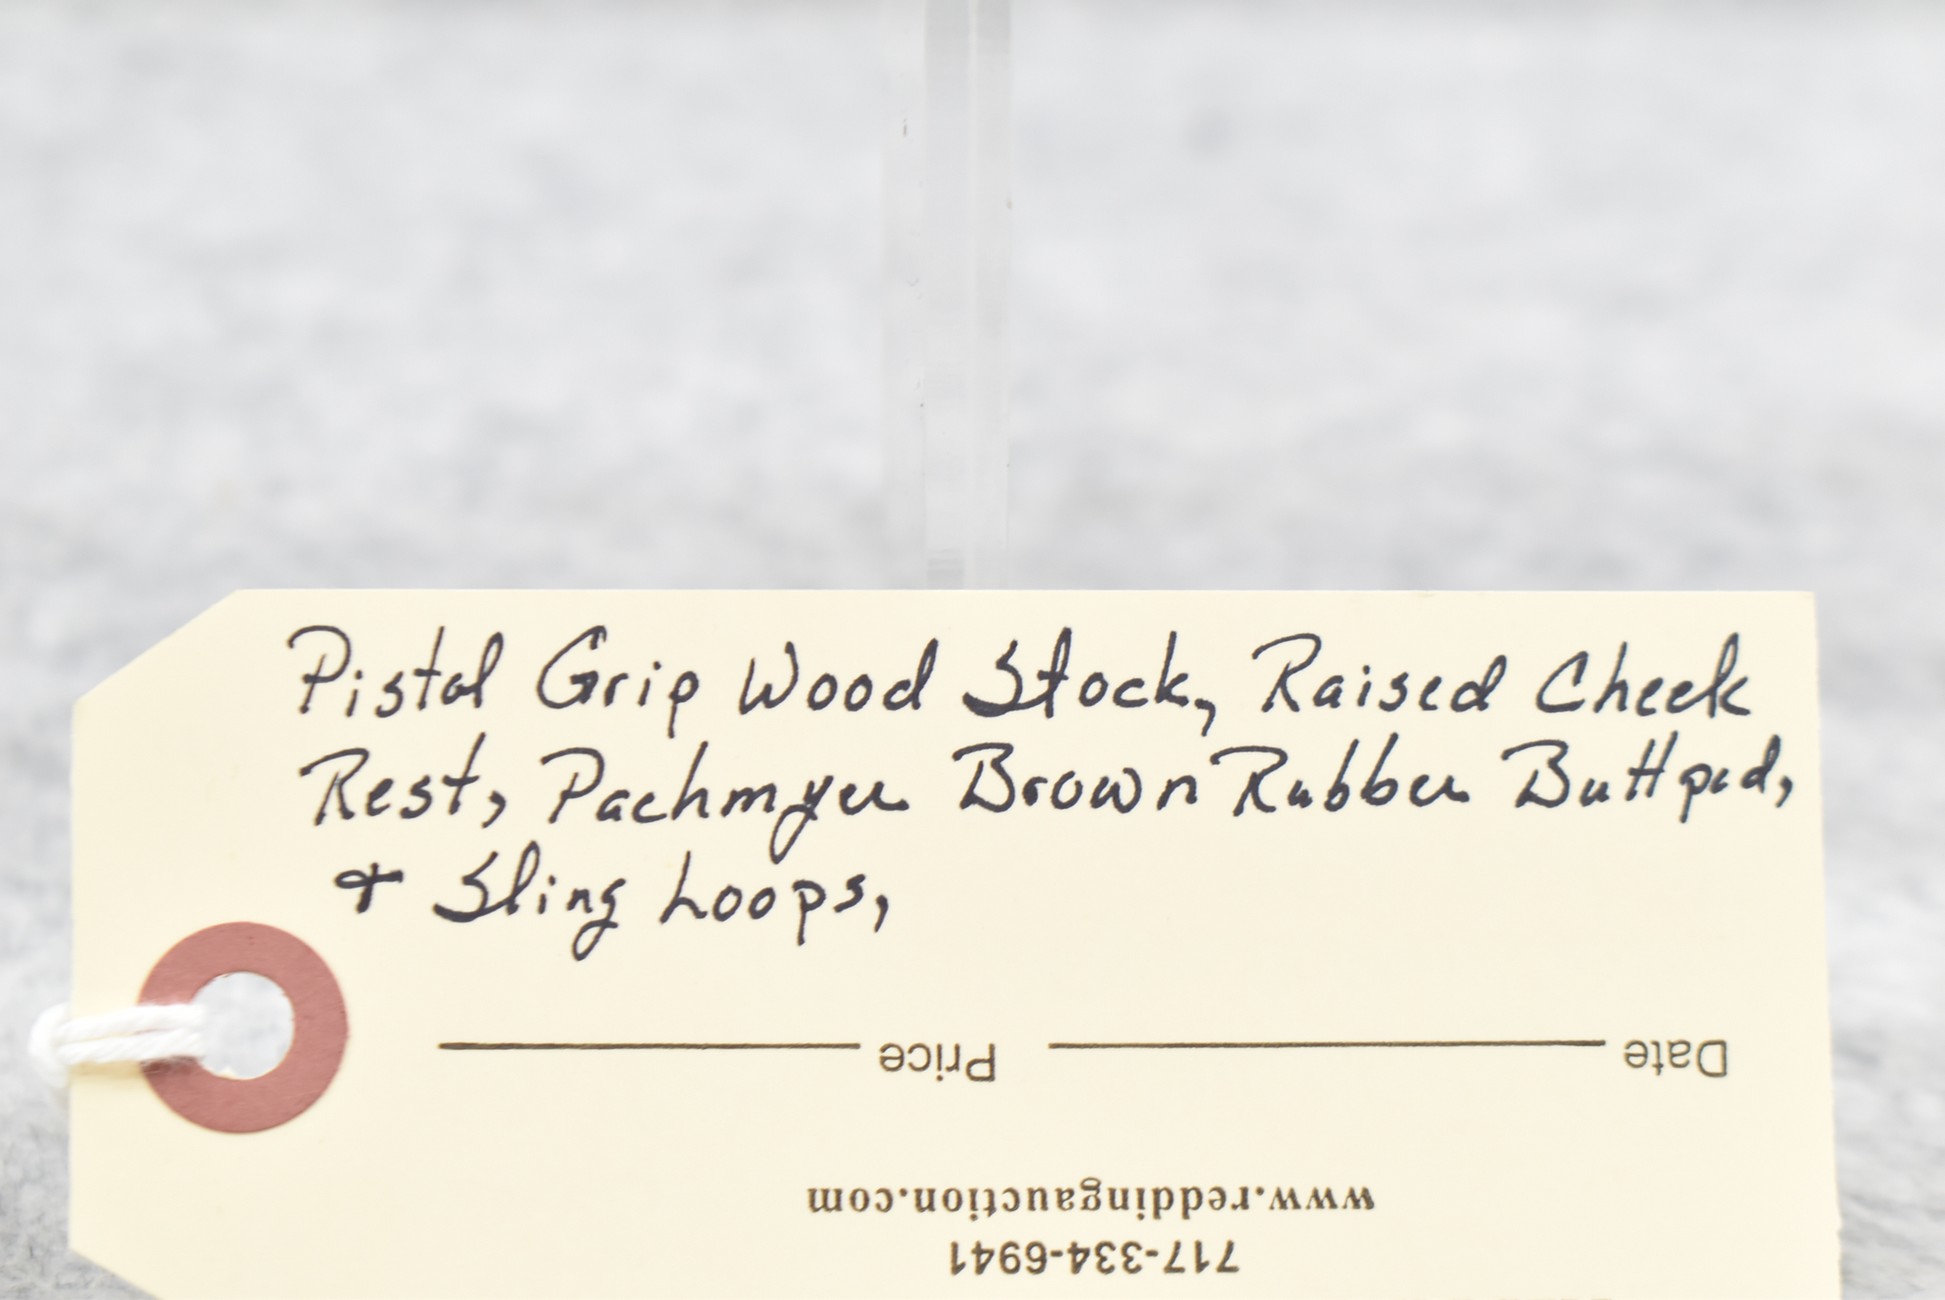 Pistol Grip Wood Stock, Raised Cheek
Rest, Pachmyer Brown Rubber Buttpad,
+ Sling Loops,
Price Date
www.reddingauction.com
717-334-6941